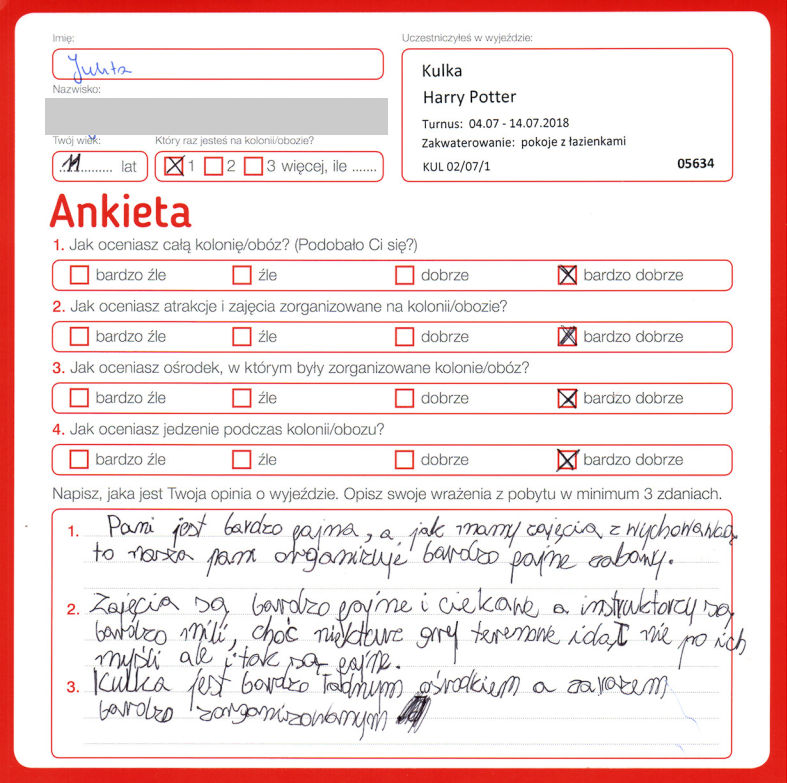 Imię:
Julita
Nazwisko:
Twój wiek:
11 lat
Który raz jesteś na kolonii/obozie?
1 2 3 więcej, ile .......
Uczestniczyłeś w wyjeździe:
Kulka
Harry Potter
Turnus: 04.07 - 14.07.2018
Zakwaterowanie: pokoje z łazienkami
KUL 02/07/1 05634
Ankieta
1. Jak oceniasz całą kolonię/obóz? (Podobało Ci się?)
bardzo źle źle dobrze bardzo dobrze
2. Jak oceniasz atrakcje i zajęcia zorganizowane na kolonii/obozie?
bardzo źle źle dobrze bardzo dobrze
3. Jak oceniasz ośrodek, w którym były zorganizowane kolonie/obóz?
bardzo źle źle dobrze bardzo dobrze
4. Jak oceniasz jedzenie podczas kolonii/obozu?
bardzo źle źle dobrze bardzo dobrze
Napisz, jaka jest Twoja opinia o wyjeździe. Opisz swoje wrażenia z pobytu w minimum 3 zdaniach.
1. Pani jest bardzo fajna, a jak mamy zajęcia z wychowawcą
to nasza pani organizuje bardzo fajne zabawy.
2. Zajęcia są bardzo fajne i ciekawe a instruktorzy są
bardzo mili, choć niektóre gry terenowe idą nie po ich
myśli ale i tak są fajne.
3. Kulka jest bardzo ładnym ośrodkiem a zarazem
bardzo zorganizowanym